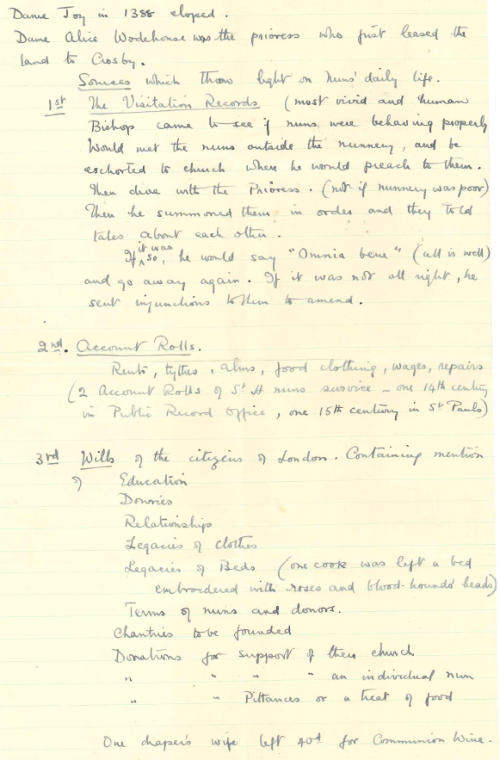 Dame Joy in 1388 eloped.
Dame Alice Wodehouse was the prioress who first leased the
land to Crosby.
Sources which throw light on nuns' daily life.
1st The Visitation Records (most vivid and human
Bishop came to see if nuns were behaving properly
Would met the nuns outside the nunnery, and be
eschorted to church where he would preach to them.
Then dine with the Prioress. (not if nunnery was poor)
Then he summoned them in order and they told
tales about each other.
If it was so, he would say "Omnia bene" (all is well)
and go away again. If it was not all right, he
sent injunctions to them to amend.
2nd. Account Rolls.
Rents, tythes, alms, food clothing, wages, repairs
(2 Account Rolls of St H nuns survive - one 14th century
in Public Record Office, one 15th century in St Pauls)
3rd Wills of the citizens of London. Containing mention
of Education
Dowries
Relationships
Legacies of clothes
Legacies of Beds (one cook was left a bed
embroidered with roses and blood-hounds' heads)
Terms of nuns and donors.
Chantries to be founded
Donations for support of their church
" " " " an individual nun
" " Pittances or a treat of food
One draper's wife left 40d for Communion Wine.